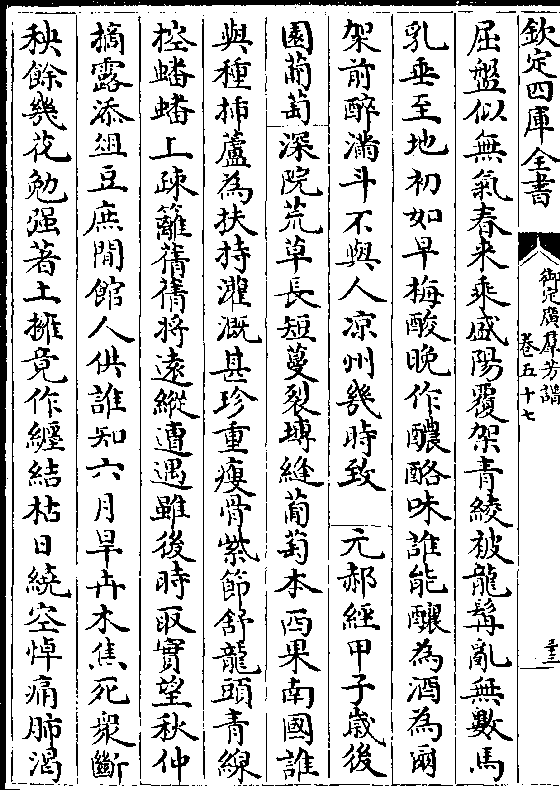 欽定四庫全書
御定廣羣芳譜
卷五十七
屈盤似無氣春来乘盛陽覆架青綾被龍髯亂無數馬
乳垂至地初如早梅酸晚作醲酪味誰能釀為酒為爾
架前醉滿斗不與人凉州幾時致 元郝經甲子歲後
園葡萄 深院荒草長短蔓裂塼縫葡萄本西果南國誰
與種插蘆為扶持灌溉甚珍重瘦骨紫節舒龍頭青線
控蟠蟠上疎籬蒨蒨將遠縱遭遇雖後時取實望秋仲
摘露添俎豆庶間館人供誰知六月旱卉木焦死衆斷
秧餘幾花勉强著土擁竟作纏結枯日繞空悼痛肺渴